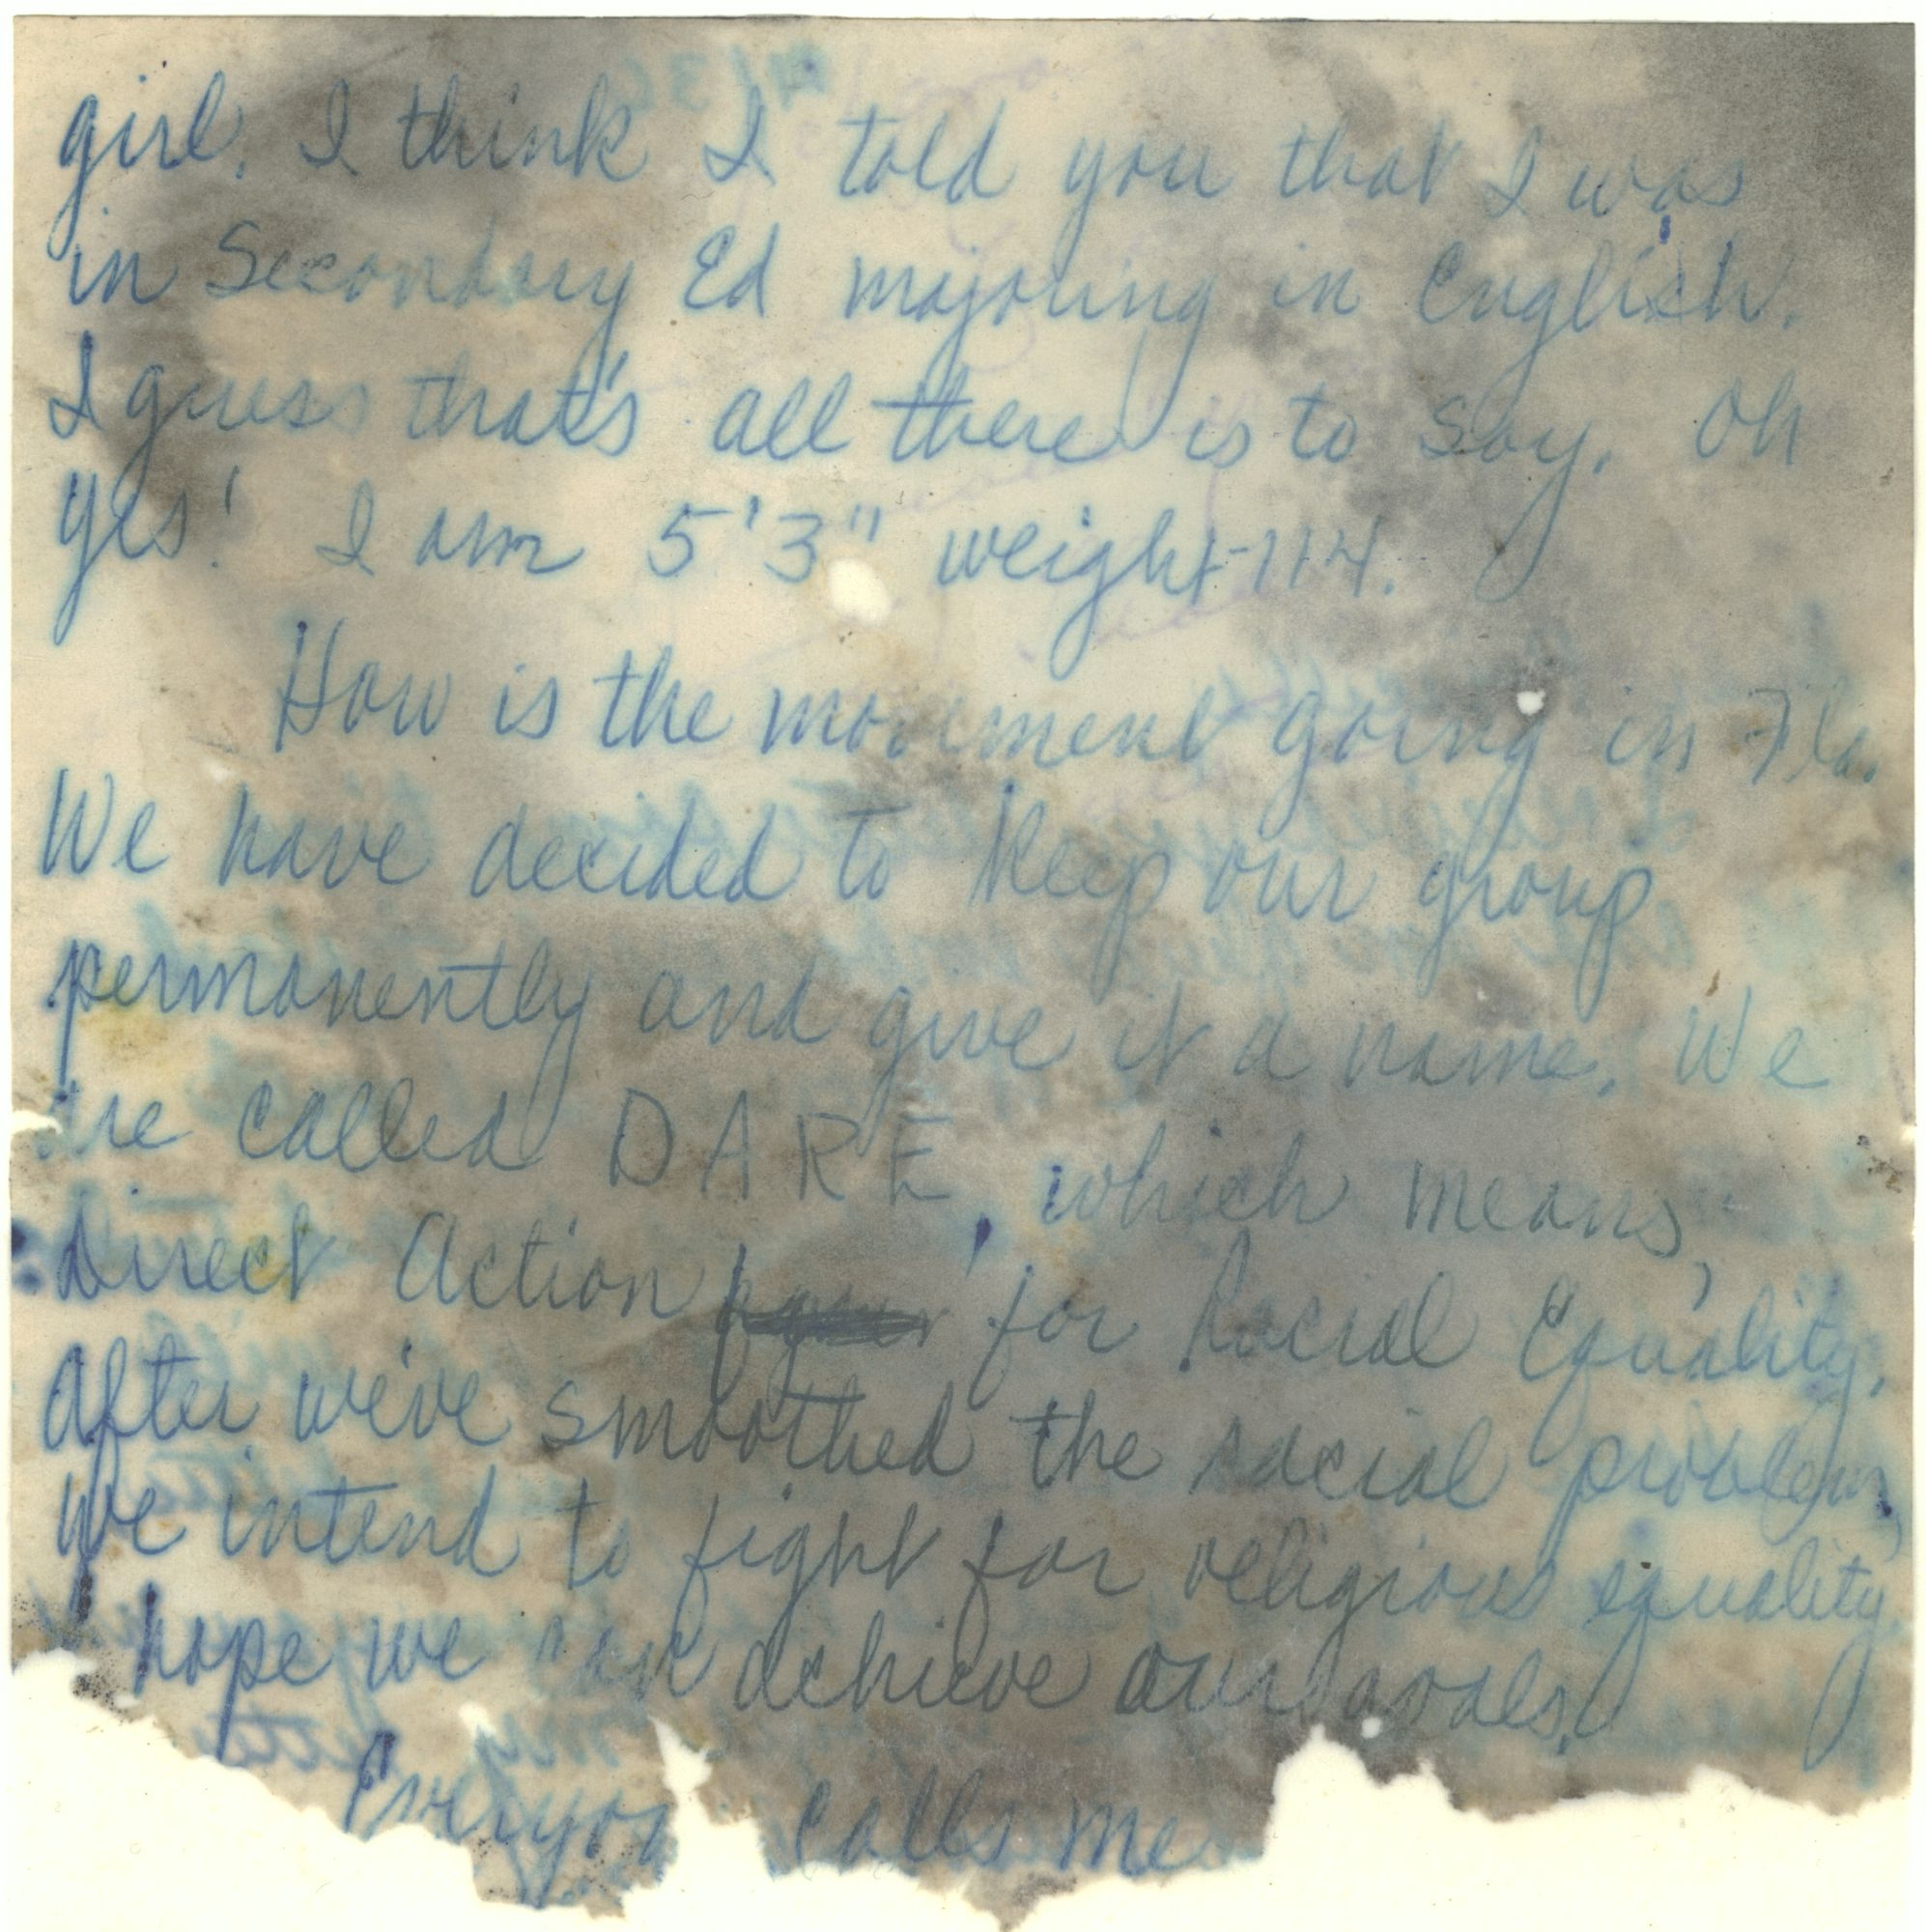 girl. I think I told you that I was
in Secondary Ed majoring in English.
I guess that's all there is to say. Oh
yes! I am 5'3" weight-114.
How is the movement going in Fla.
We have decided to keep our group
permanently and give it a name. We
are called DARE, which means,
Direct Action for Racial Equality.
After we've smoothed the racial problem,
we intend to fight for religious equality.
hope we can achieve our goals.
calls me